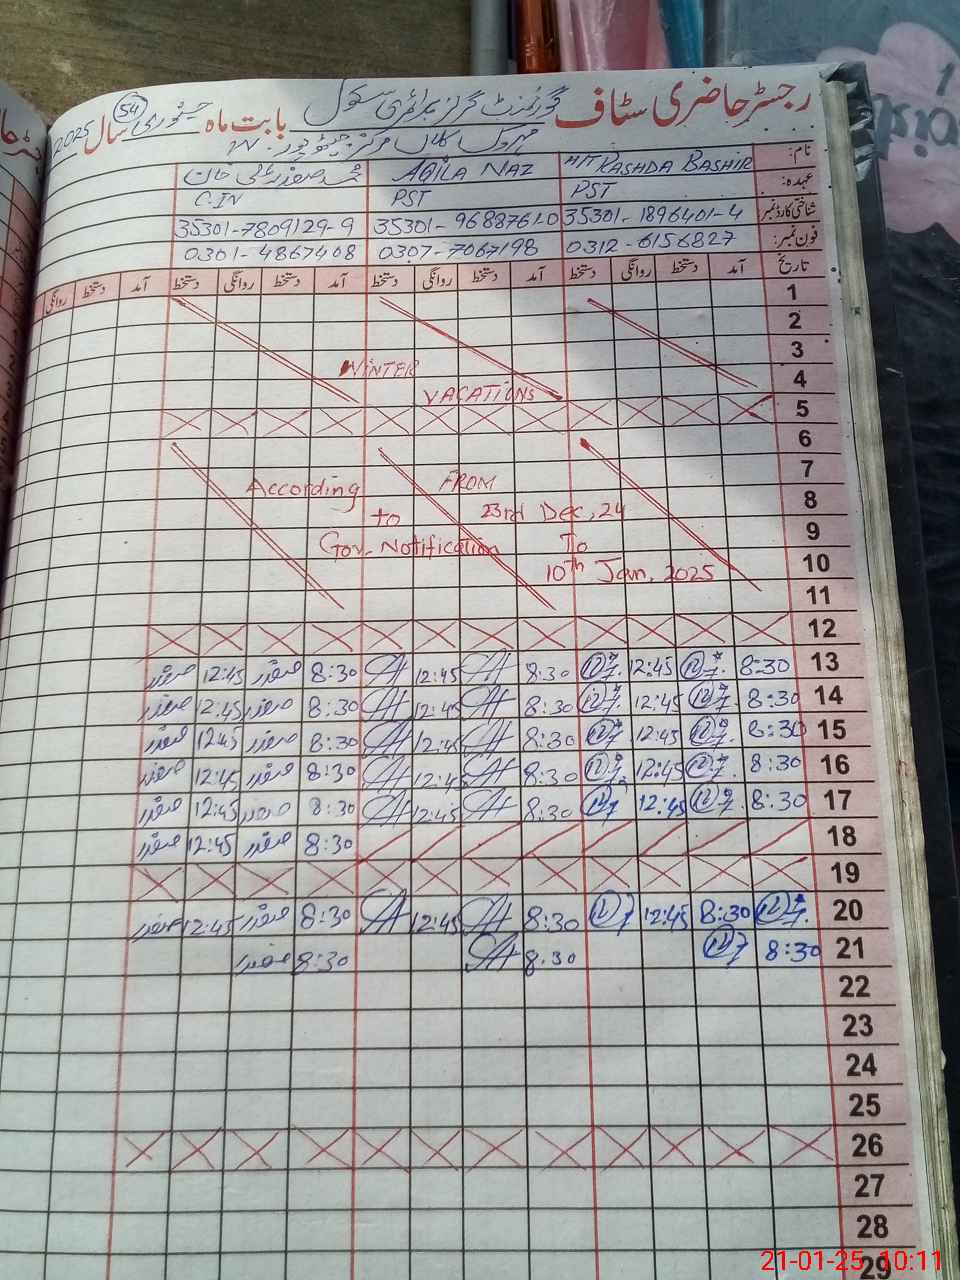 رجسٹر حاضری سٹاف گورنمنٹ گرلز پرائمری سکول بابت ماہ جنوری سال 2025
54
نام: H/T RASHDA BASHIR AQILA NAZ محمد صفدر علی خان
عہدہ: PST PST C.IV
شناختی کارڈ نمبر 35301-1896401-4 35301-9688761-0 35301-7809129-9
فون نمبر: 0312-6156827 0307-7067198 0301-4867408
تاریخ آمد دستخط روانگی دستخط آمد دستخط روانگی دستخط آمد دستخط روانگی دستخط آمد دستخط روانگی
1
2
3
WINTER
4
VACATIONS
5
6
7
According FROM
8
to 23rd Dec, 24
9
Gov. Notification To
10
10th Jan, 2025
11
12
13 8:30 12:45 8:30 12:45 8:30 صفدر 12:45 صفدر
14 8:30 12:45 8:30 12:45 8:30 صفدر 12:45 صفدر
15 8:30 12:45 8:30 12:45 8:30 صفدر 12:45 صفدر
16 8:30 12:45 8:30 12:45 8:30 صفدر 12:45 صفدر
17 8:30 12:45 8:30 12:45 8:30 صفدر 12:45 صفدر
18 8:30 صفدر 12:45 صفدر
19
20 8:30 12:45 8:30 12:45 8:30 صفدر 12:45 صفدر
21 8:30 8:30 8:30 صفدر
22
23
24
25
26
27
28
29
21-01-25 10:11